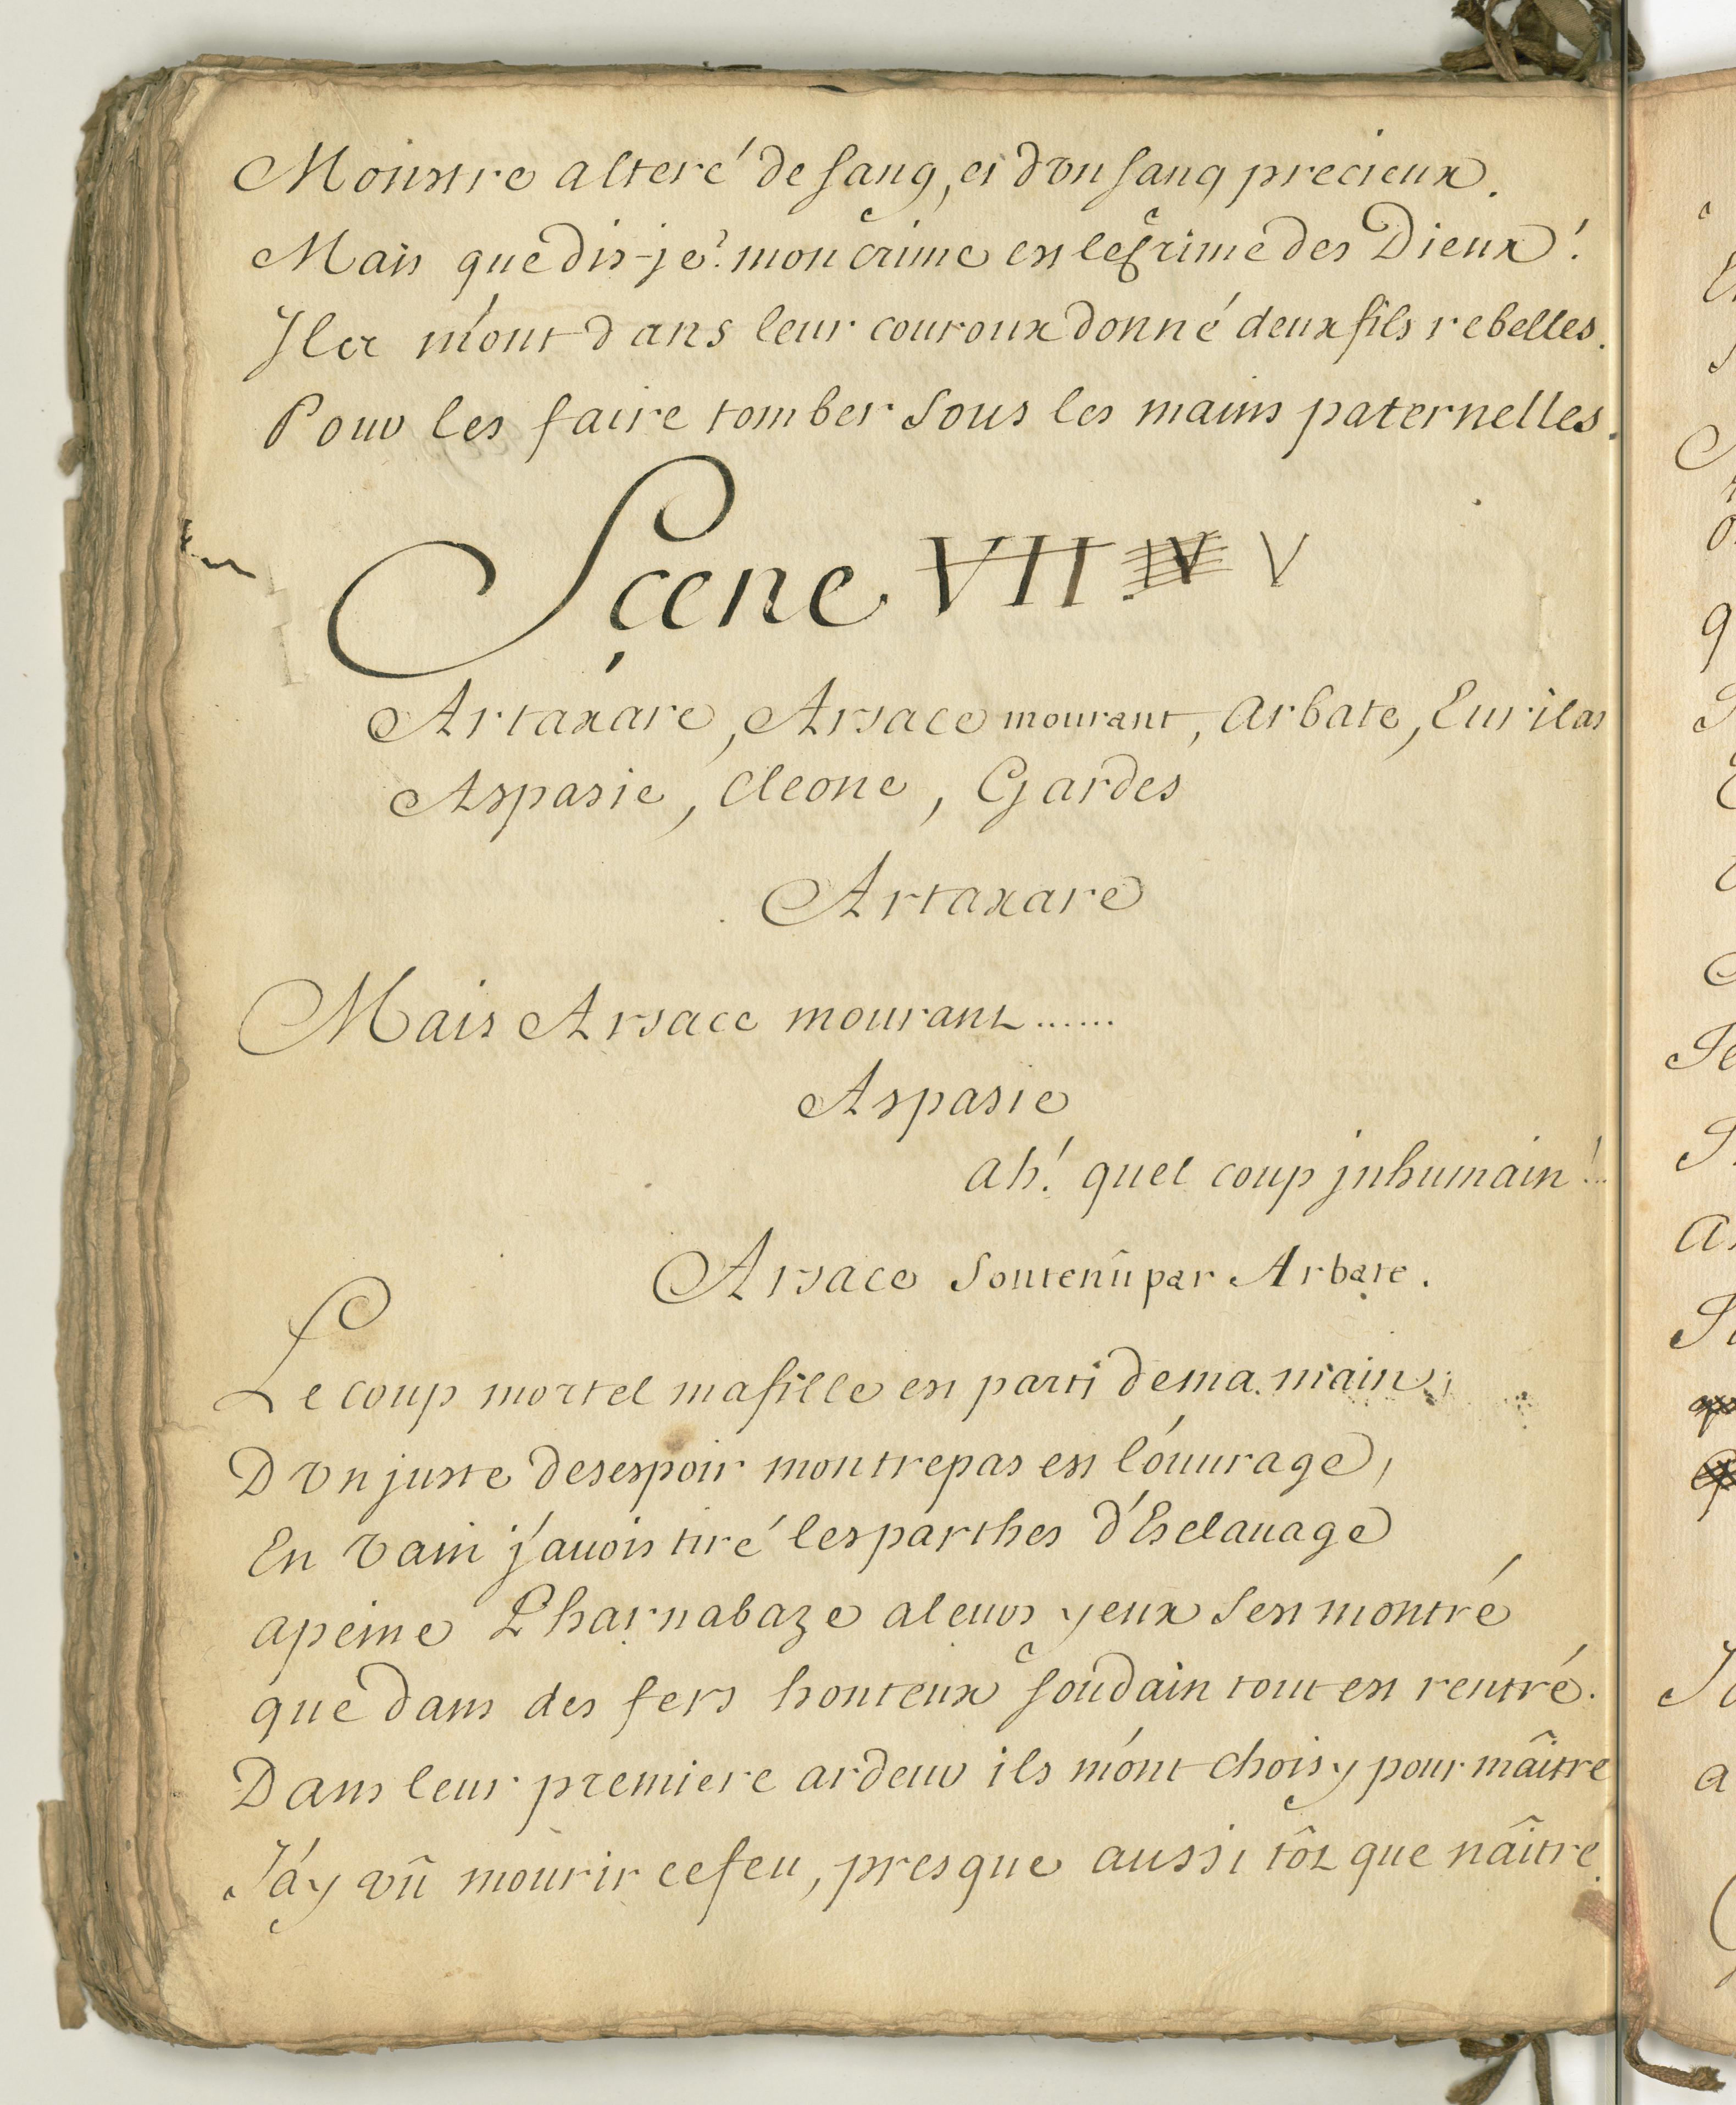 Monstre alteré de sang, et d'vn sang precieux.
Mais que dis-je? mon crime est le crime des Dieux!
Ils m'ont dans leur couroux donné deux fils rebelles.
Pour les faire tomber sous les mains paternelles.
Sçene VII IV V
Artaxare, Arsace mourant, Arbate, Eurilas
Aspasie, Cleone, Gardes
Artaxare
Mais Arsace mourant......
Aspasie
ah! quel coup jnhumain!..
Arsace soutenû par Arbate.
Le coup mortel ma fille est parti de ma main;
D'vn juste desespoir mon trepas est l'ouurage,
En vain j'auois tiré les parthes d'Esclauage
apeine Pharnabaze a leurs yeux s'est montré
que dans des fers honteux soudain tout est rentré.
Dans leur premiere ardeur ils m'ont choisy pour maître
J'ay vû mourir ce feu, presque aussi tôt que naître.